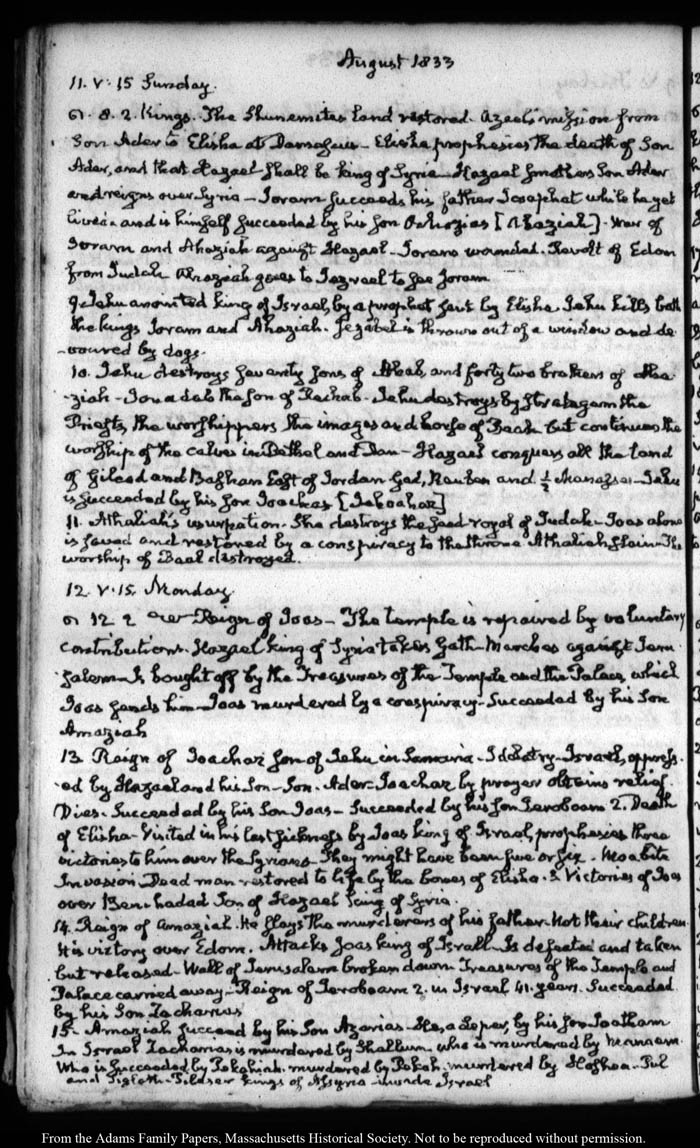 August 1833
11. V: 15 Sunday.
8. 2. Kings. The Shunemites land restored. Azael's mission from
Son Ader to Elisha at Damascus - Elisha prophesies the death of Son
Ader, and that Hazael shall be king of Syria - Hazael smothers Son Ader
and reigns over Syria - Joram succeeds his father Josaphat while he yet
lived and is himself succeeded by his son Ochozias [Ahaziah] - War of
Joram and Ahaziah against Hazael - Joram wounded. Revolt of Edom
from Judah Ahaziah goes to Jezrael to see Joram
9. Jehu anointed king of Israel, by a prophet sent by Elisha. Jehu kills both
the kings Joram and Ahaziah. Jezabel is thrown out of a window and de
-voured by dogs.
10. Jehu destroys seventy sons of Ahab, and forty two brothers of Aha
-ziah - Jonadab the son of Rechab - Jehu destroys by stratagem the
Priests, the worshippers the images and house of Baal but continues the
worship of the calves in Bethel and Dan - Hazael conquers all the land
of Gilead and Bashan East of Jordan Gad, Reuben and ½ Manasse - Jehu
is succeeded by his son Joachas [Jehoahaz]
11. Athaliah's usurpation. She destroys the seed royal of Judah - Joas alone
is saved and restored by a conspiracy to the throne Athaliah slain - The
worship of Baal destroyed.
12. V: 15. Monday
12 2 Reign of Joas - The temple is repaired by voluntary
contributions. Hazael king of Syria takes Gath - Marches against Jeru
-salem - Is bought off by the Treasures of the Temple and the Palace, which
Joas sends him - Joas murdered by a conspiracy - Succeeded by his Son
Amaziah
13. Reign of Joachaz son of Jehu in Samaria - Idolatry - Israel, oppress
-ed by Hazael and his son - Son - Ader - Joachaz by prayer obtains relief.
Dies. Succeeded by his Son Joas - Succeeded by his son Jeroboam 2. Death
of Elisha - Visited in his last sickness by Joas king of Israel, prophesies three
victories to him over the Syrians - They might have been five or six - Moabite
Invasion - Dead man restored to life by the bones of Elisha. 3 Victories of Joas
over Benhadad Son of Hazael king of Syria.
14. Reign of Amaziah. He slays the murderers of his father - Not their children
His victory over Edom. Attacks Joas king of Israel - Is defeated and taken
but released - Wall of Jerusalem broken down Treasures of the Temple and
Palace carried away - Reign of Jeroboam 2. in Israel 41. years. Succeeded
by his Son Zacharias
15. Amaziah succeed by his Son Azarias - He, a leper, by his son Joatham
In Israel Zacharias is murdered by Shallum who is murdered by Manaem
Who is succeeded by Pekahiah. murdered by Pekah. murdered by Hoshea - Pul
and Tiglath-Pilaser kings of Assyria invade Israel
From the Adams Family Papers, Massachusetts Historical Society. Not to be reproduced without permission.